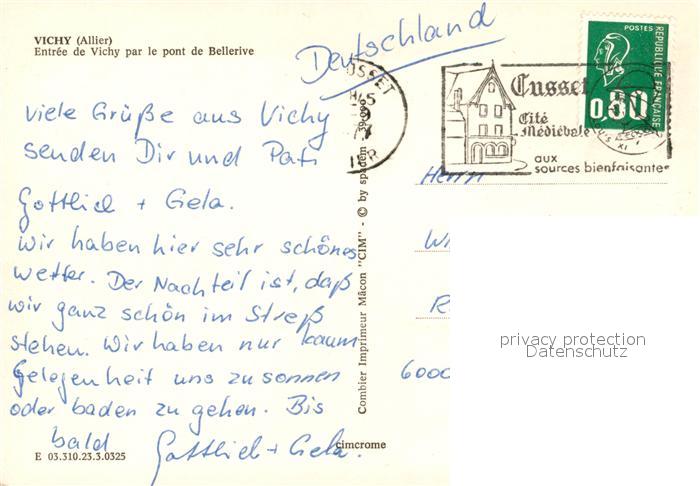 VICHY (Allier)
Entrée de Vichy par le pont de Bellerive
Deutschland
CUSSET
Cusset
Cité
Médiévale
aux
sources bienfaisantes
POSTES
REPUBLIQUE FRANÇAISE
0,80
Viele Grüße aus Vichy
senden Dir und Pati
Gottlich + Gela.
Wir haben hier sehr schönes
Wetter. Der Nachteil ist, daß
wir ganz schön im Streß
stehen. Wir haben nur kaum
Gelegenheit uns zu sonnen
oder baden zu gehen. Bis
bald Gottlich + Gela.
Herrn
6000
Combier Imprimeur Mâcon "CIM" - © by spadem
cimcrome
E 03.310.23.3.0325
privacy protection
Datenschutz